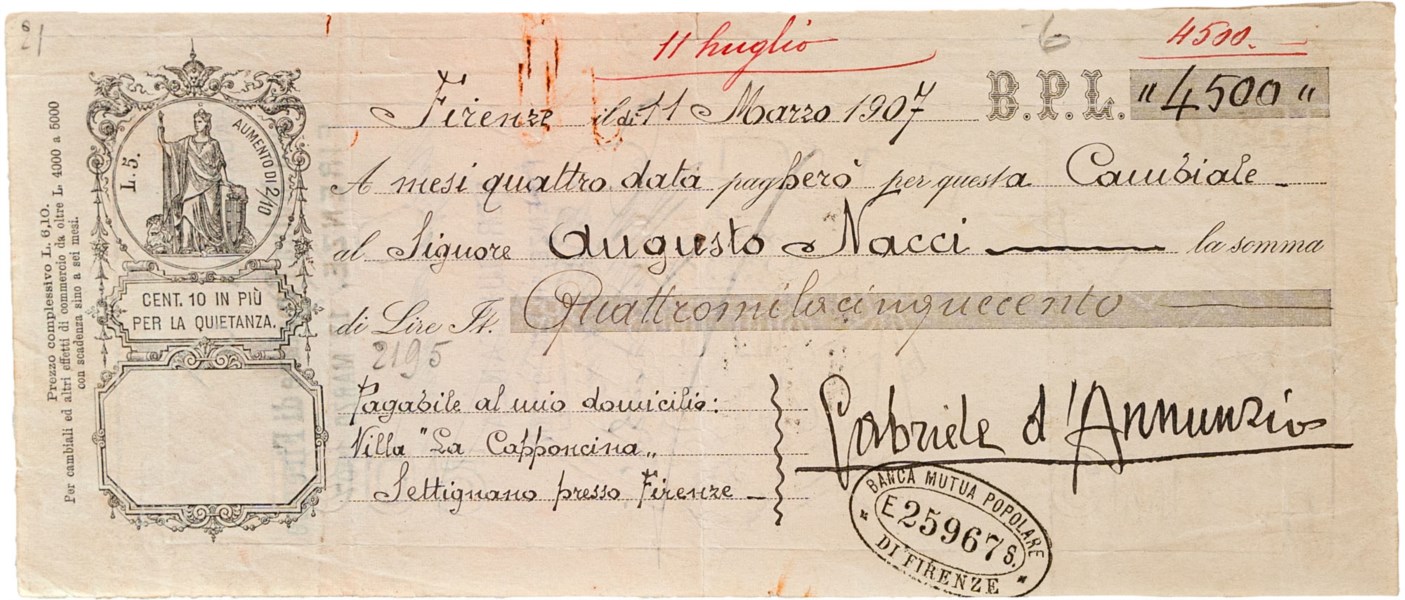 11 Luglio
6
4500.
Firenze il dì 11 Marzo 1907 B.P.L. "4500"
A mesi quattro data pagherò per questa Cambiale
al Signore Augusto Nacci la somma
di Lire It. Quattromilacinquecento
2195
Pagabile al mio domicilio:
Villa "La Capponcina„
Settignano presso Firenze
Gabriele d'Annunzio
BANCA MUTUA POPOLARE
E 25967 S.
DI FIRENZE
L. 5.
AUMENTO DI 2/10
CENT. 10 IN PIÙ
PER LA QUIETANZA.
Prezzo complessivo L. 6,10.
Per cambiali ed altri effetti di commercio da oltre L. 4000 a 5000
con scadenza sino a sei mesi.